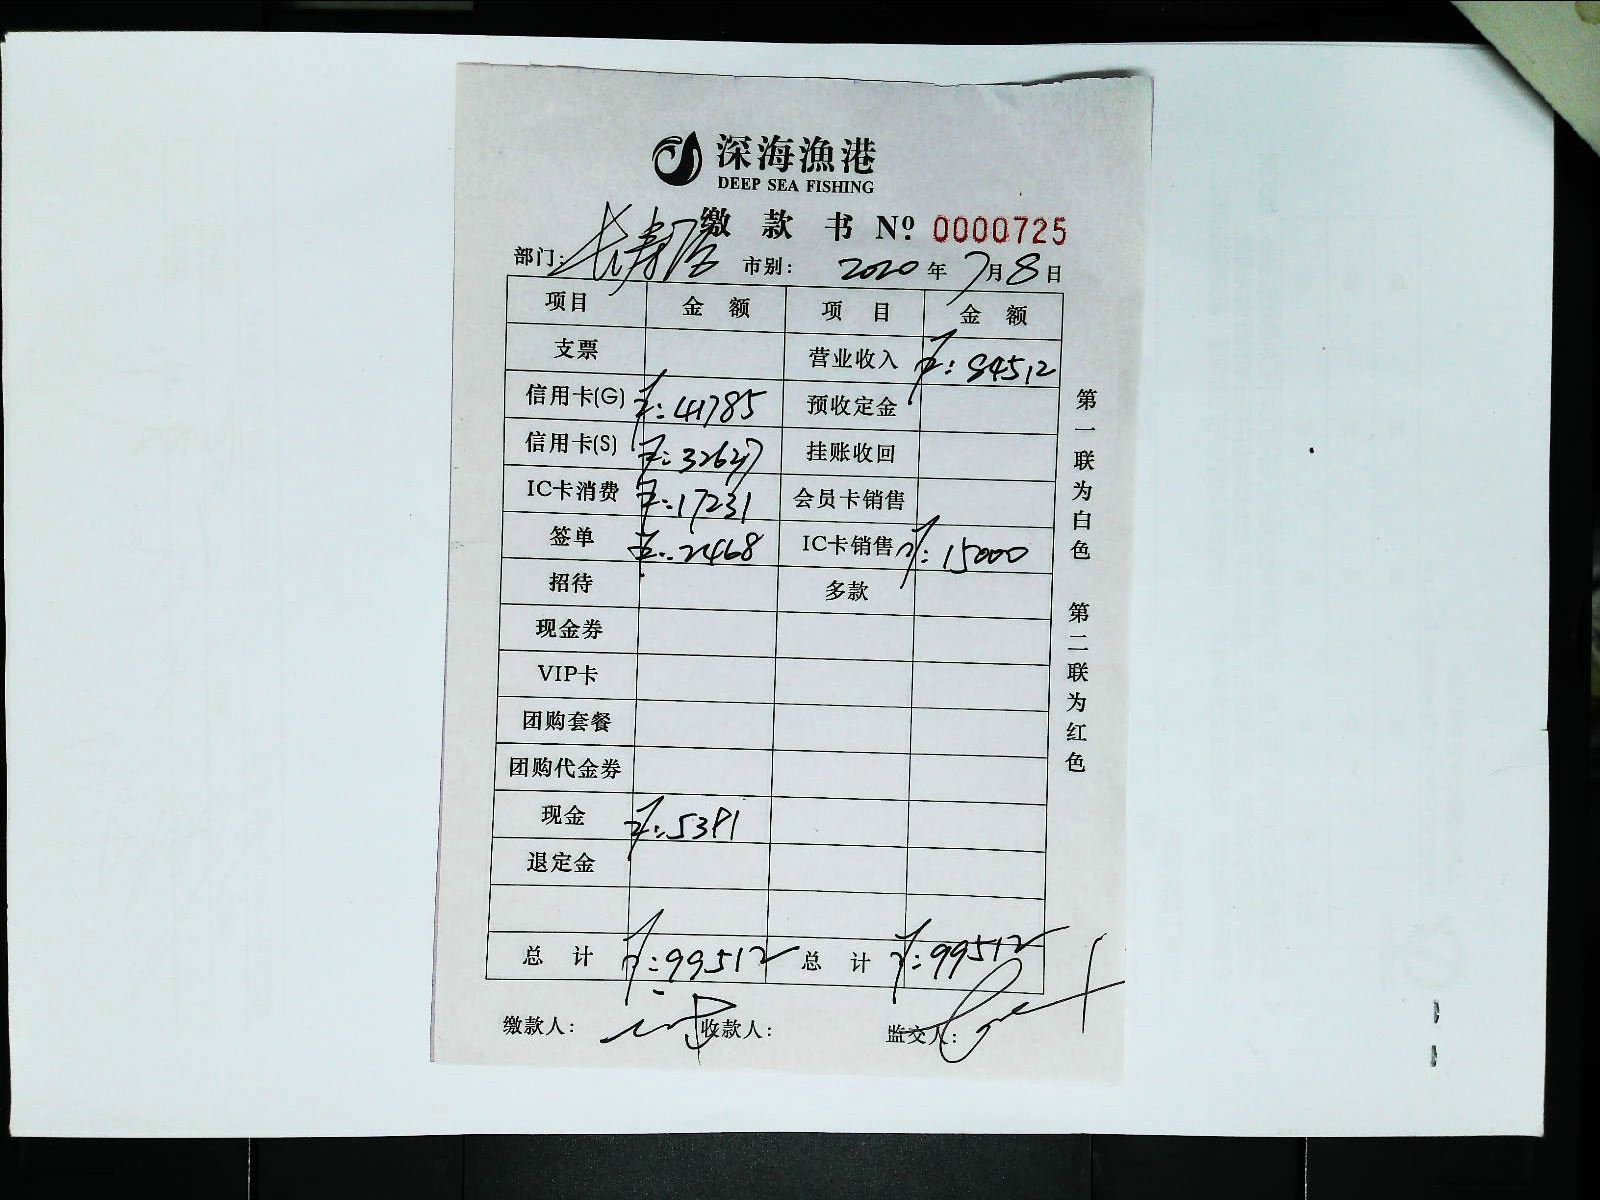 深海漁港
DEEP SEA FISHING
缴 款 书 Nº 0000725
部门: 长寿路 市别: 2020 年 7 月 8 日
项目 金 额 项 目 金 额
支票 营业收入 ¥:84512
信用卡(G) ¥:41785 预收定金
信用卡(S) ¥:32647 挂账收回
IC卡消费 ¥:17231 会员卡销售
签单 ¥:2468 IC卡销售 ¥:15000
招待 多款
现金券
VIP卡
团购套餐
团购代金券
现金 ¥:5381
退定金
总 计 ¥:99512 总 计 ¥:99512
缴款人: 收款人: 监交人:
第一联为白色 第二联为红色